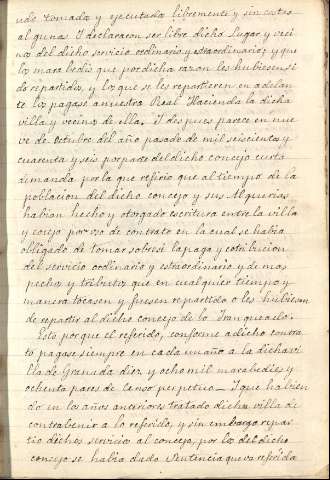 udo tomada y ejecutada libremente y sin costas
algunas. I declararon ser libre dicho Lugar y veci
nos del dicho servicio ordinario y estraordinario; y que
los maravedis que por dicha razon les hubiesen si
do repartidos, y los que se les repartieren en adelan
te los pagase a nuestra Real Hacienda la dicha
villa y vecinos de ella. I despues parece en nue
ve de octubre del año pasado de mil seiscientos y
cuarenta y seis por parte del dicho concejo cierta
demanda por la que refirio que al tiempo de la
poblacion del dicho concejo y sus Alquerias
habian hecho y otorgado escritura entre la villa
y concejo por vos de contrato en la cual se habia
obligado de tomar sobre si la paga y contribucion
del servicio ordinario y estraordinario y demas
pechos y tributos que en cualquier tiempo y
manera tocasen y fuesen repartido o les hubiesen
de repartir al dicho concejo de lo Franqueado.
Esto porque el referido, conforme a dicho contra
to pagase siempre en cada un año a la dicha vi
lla de Granada diez y ocho mil maravedies y
ochenta pares de Censo perpetuo_ I que habien
do en los años anteriores tratado dicha villa de
contrabenir a lo referido, y sin embargo repar
tio dichos servicios al concejo, por los del dicho
concejo se habia dado Sentencia que va referida